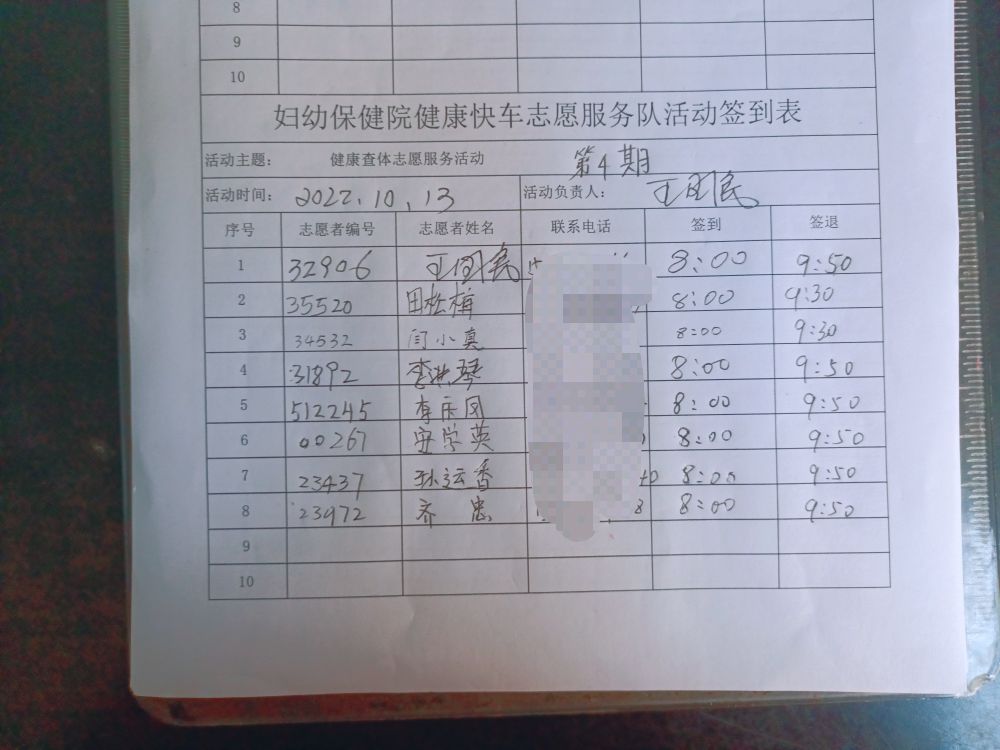 8
9
10
妇幼保健院健康快车志愿服务队活动签到表
活动主题： 健康查体志愿服务活动 第4期
活动时间： 2022.10.13 活动负责人： 王国民
序号 志愿者编号 志愿者姓名 联系电话 签到 签退
1 32906 王国民 8:00 9:50
2 35520 田松梅 8:00 9:30
3 34532 闫小真 8:00 9:30
4 31892 李洪琴 8:00 9:50
5 512245 李庆凤 8:00 9:50
6 00267 安学英 8:00 9:50
7 23437 孙运香 8:00 9:50
8 23972 齐忠 8 8:00 9:50
9
10